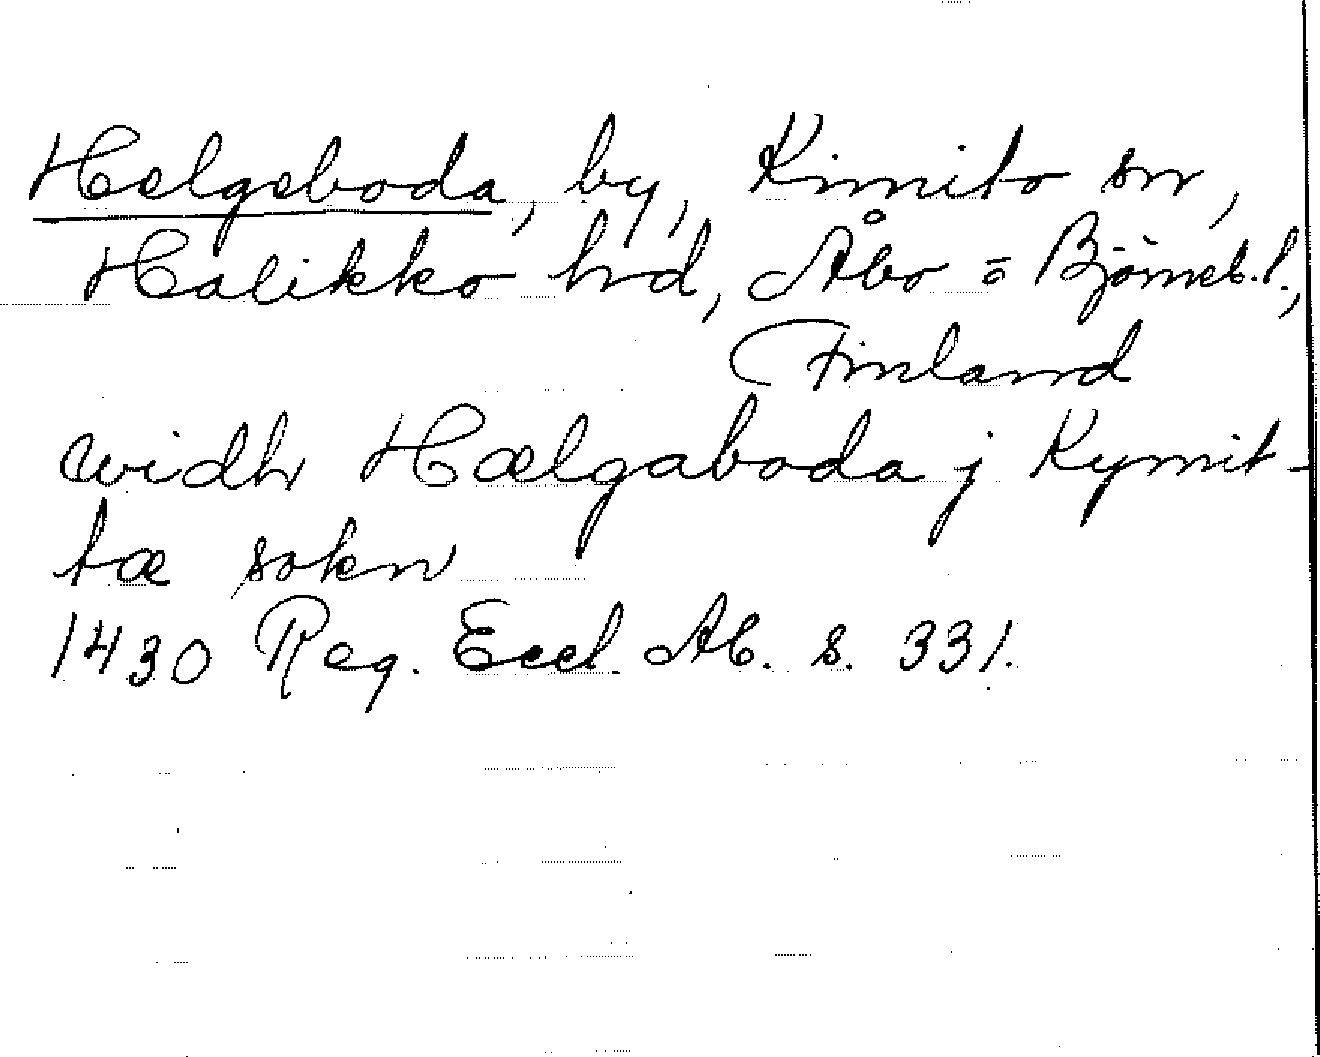 Helgeboda, by, Kimito sn,
Halikko hd, Åbo = Björneb. l.,
Finland
widh Hælgaboda j Kymit-
tæ sokn
1430 Reg. Eccl. Ab. s. 331.